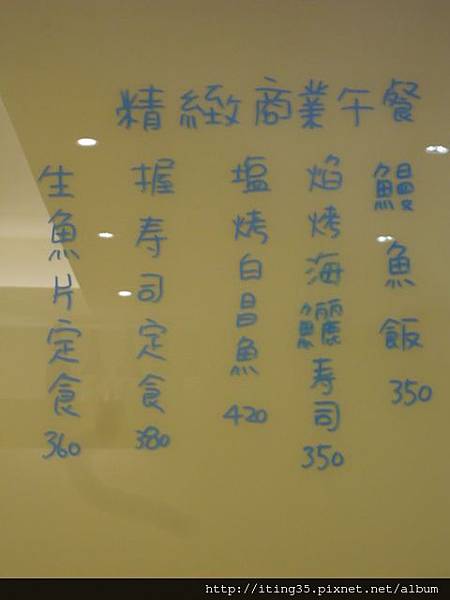 精緻商業午餐
鰻魚飯 350
焰烤海鱺寿司 350
塩烤白昌魚 420
握寿司定食 380
生魚片定食 360
http://iting35.pixnet.net/album